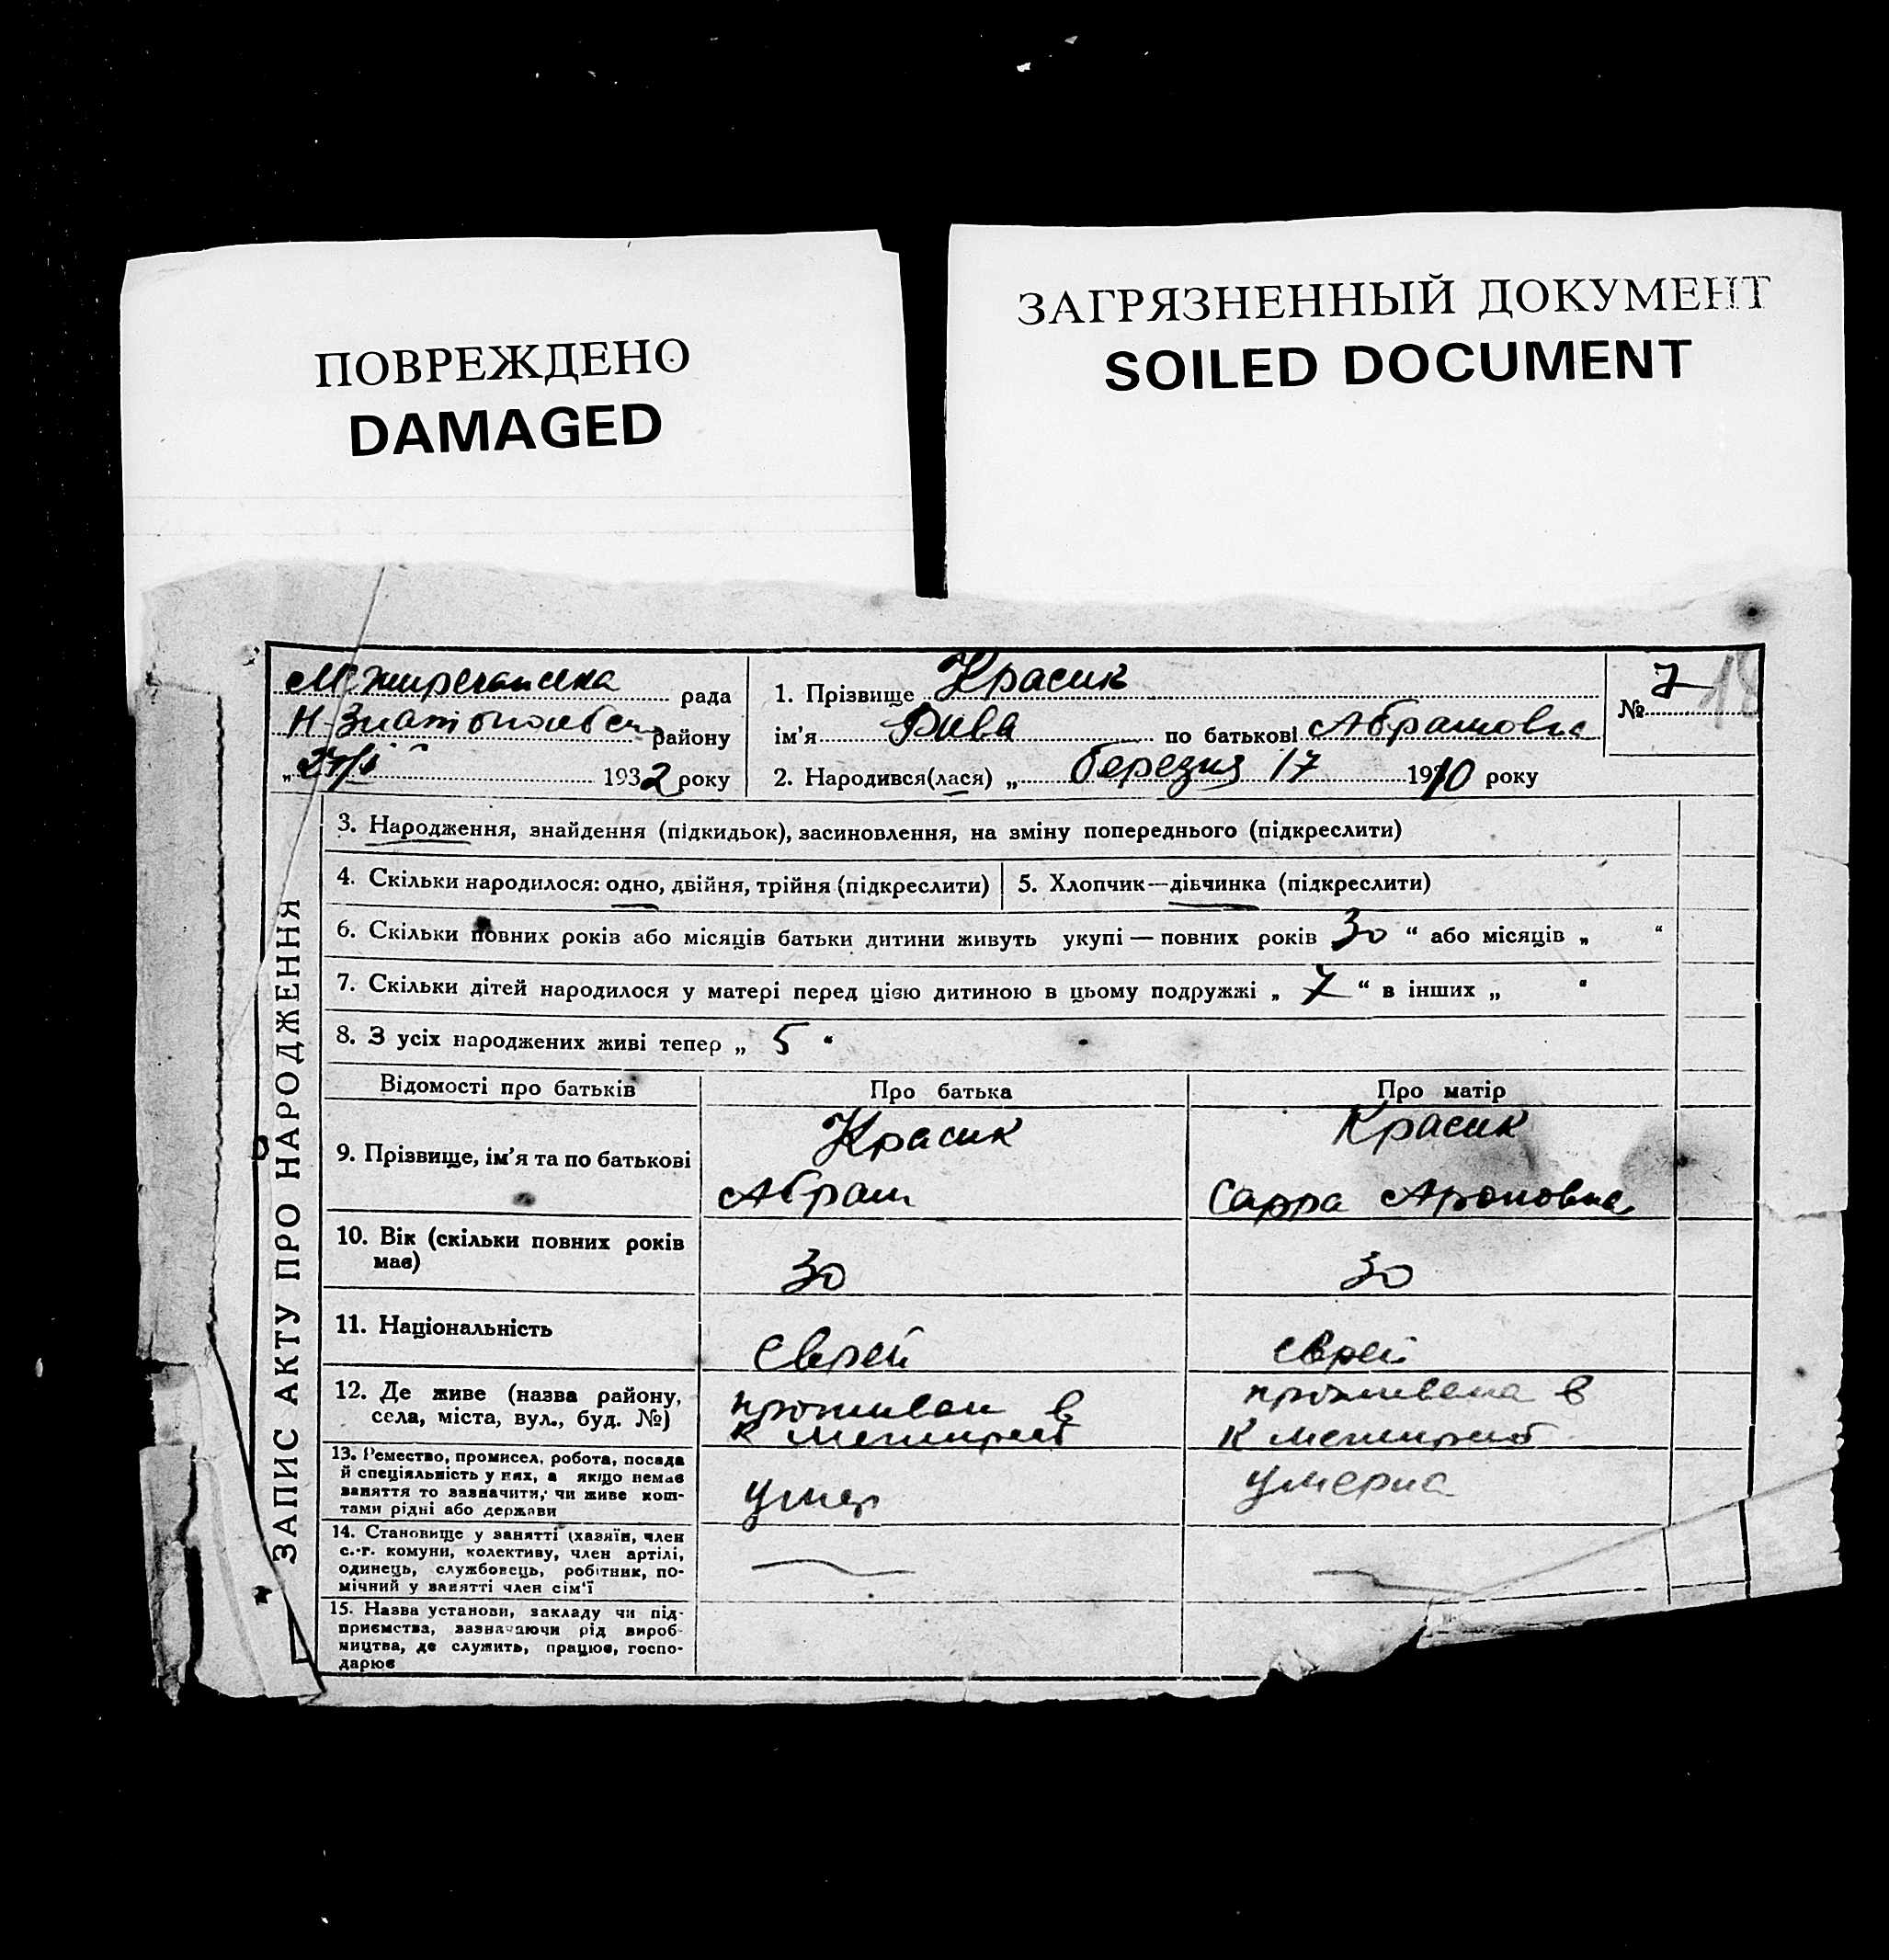 ПОВРЕЖДЕНО
DAMAGED
ЗАГРЯЗНЕННЫЙ ДОКУМЕНТ
SOILED DOCUMENT
рада
району
1932 року
1. Прізвище Красик
ім'я Рива по батькові Абрамовна
2. Народився(лася) „ березня 17 1910 року
№ 7 18
ЗАПИС АКТУ ПРО НАРОДЖЕННЯ
3. Народження, знайдення (підкидьок), засиновлення, на зміну попереднього (підкреслити)
4. Скільки народилося: одно, двійня, трійня (підкреслити)
5. Хлопчик—дівчинка (підкреслити)
6. Скільки повних років або місяців батьки дитини живуть укупі — повних років 30 “ або місяців „ “
7. Скільки дітей народилося у матері перед цією дитиною в цьому подружжі „ 7 “ в інших „ “
8. З усіх народжених живі тепер „ 5 “
Відомості про батьків
Про батька
Про матір
9. Прізвище, ім'я та по батькові
Красик
Абрам
Красик
Сарра Ароновна
10. Вік (скільки повних років
має)
30
30
11. Національність
Єврей
Єврей
12. Де живе (назва району,
села, міста, вул., буд. №)
проживав в
проживала в
13. Ремество, промисел, робота, посада
й спеціяльність у них, а якщо немає
заняття то зазначити, чи живе кош-
тами рідні або держави
умер
умерла
14. Становище у занятті (хазяїн, член
с.-г. комуни, колективу, член артілі,
одинець, службовець, робітник, по-
мічний у занятті член сім'ї
15. Назва установи, закладу чи під-
приємства, зазначаючи рід вироб-
ництва, де служить, працює, госпо-
дарює